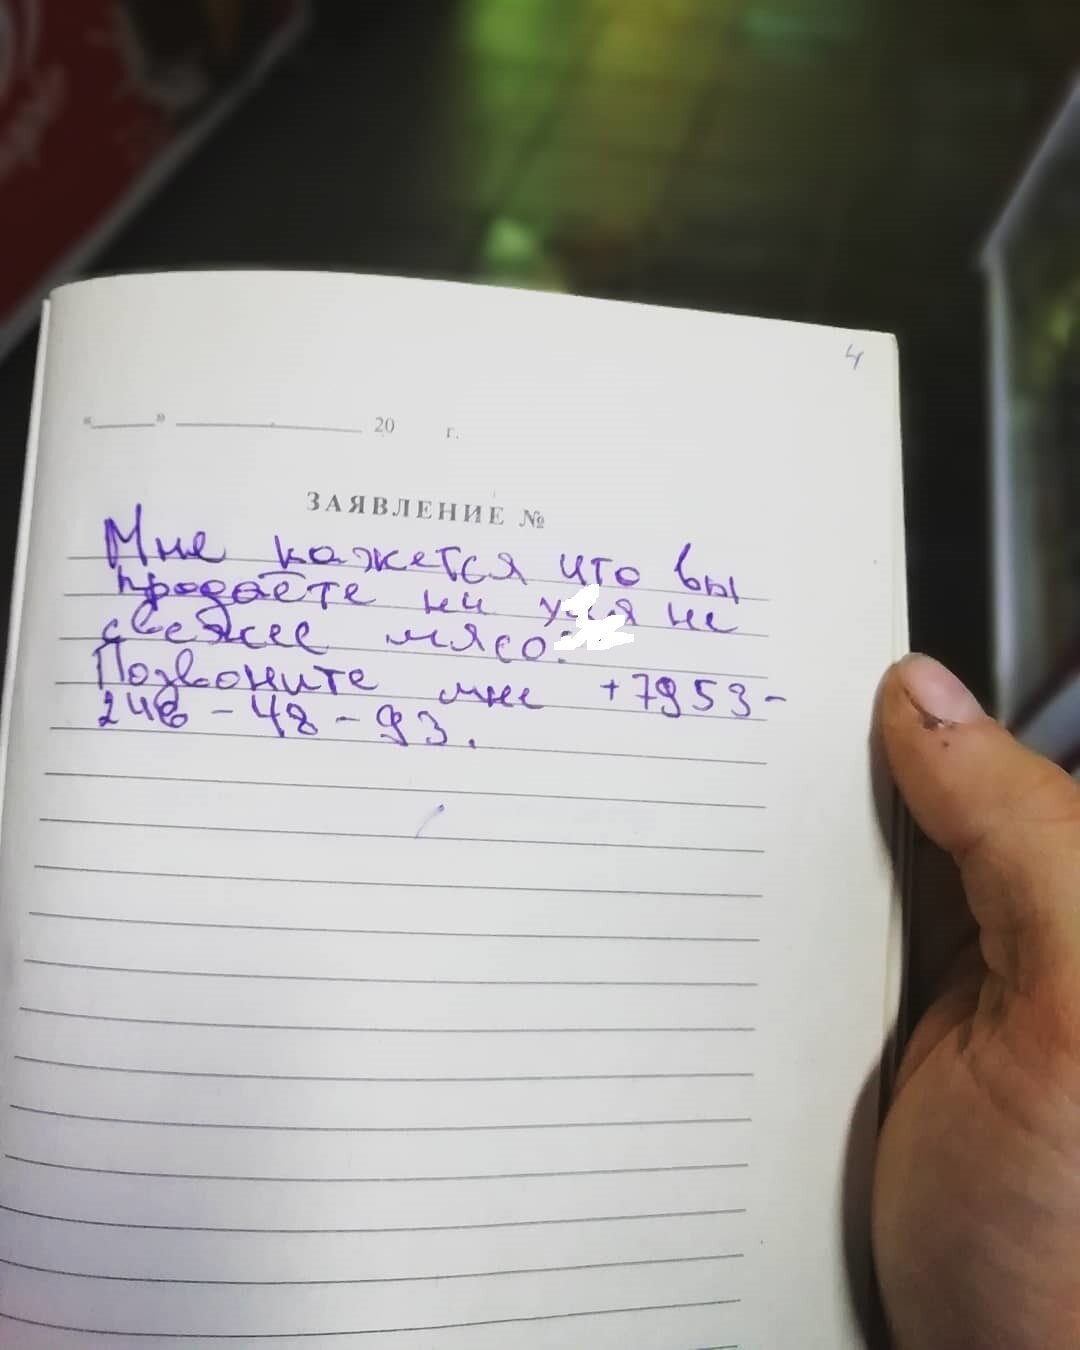 4
«___» ___ 20 г.
ЗАЯВЛЕНИЕ №
Мне кажется что вы
продаёте не
свежее мясо.
Позвоните мне +7953-
246-48-93.